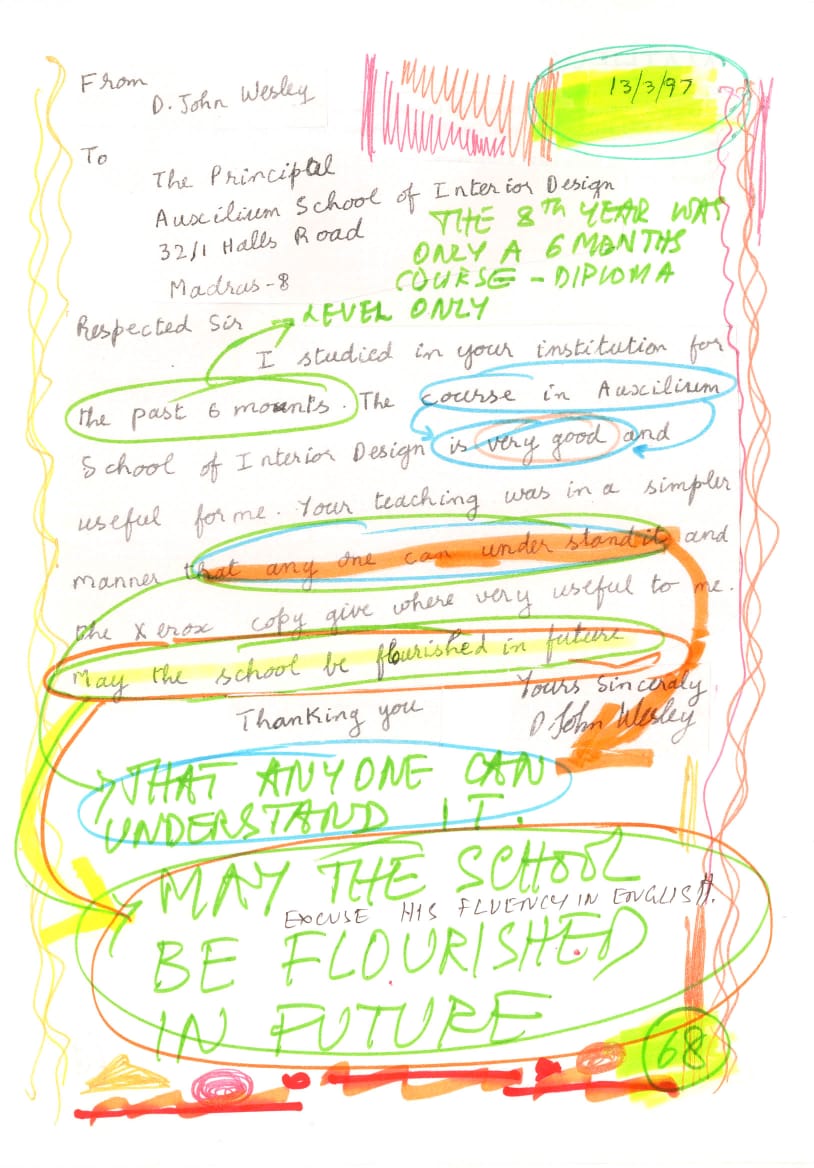 From
D. John Wesley
13/3/97
To
The Principal
Auxilium School of Interior Design
32/1 Halls Road
Madras-8
THE 8TH YEAR WAS
ONLY A 6 MONTHS
COURSE - DIPLOMA
LEVEL ONLY
Respected Sir
I studied in your institution for
the past 6 mounts. The course in Auxilium
School of Interior Design is very good and
useful for me. Your teaching was in a simpler
manner that any one can under stand it and
the Xerox copy give where very useful to me.
May the school be flourished in future
Yours Sinceraly
Thanking you
D John Wesley
THAT ANYONE CAN
UNDERSTAND IT.
MAY THE SCHOOL
EXCUSE HIS FLUENCY IN ENGLISH.
BE FLOURISHED
IN FUTURE
68